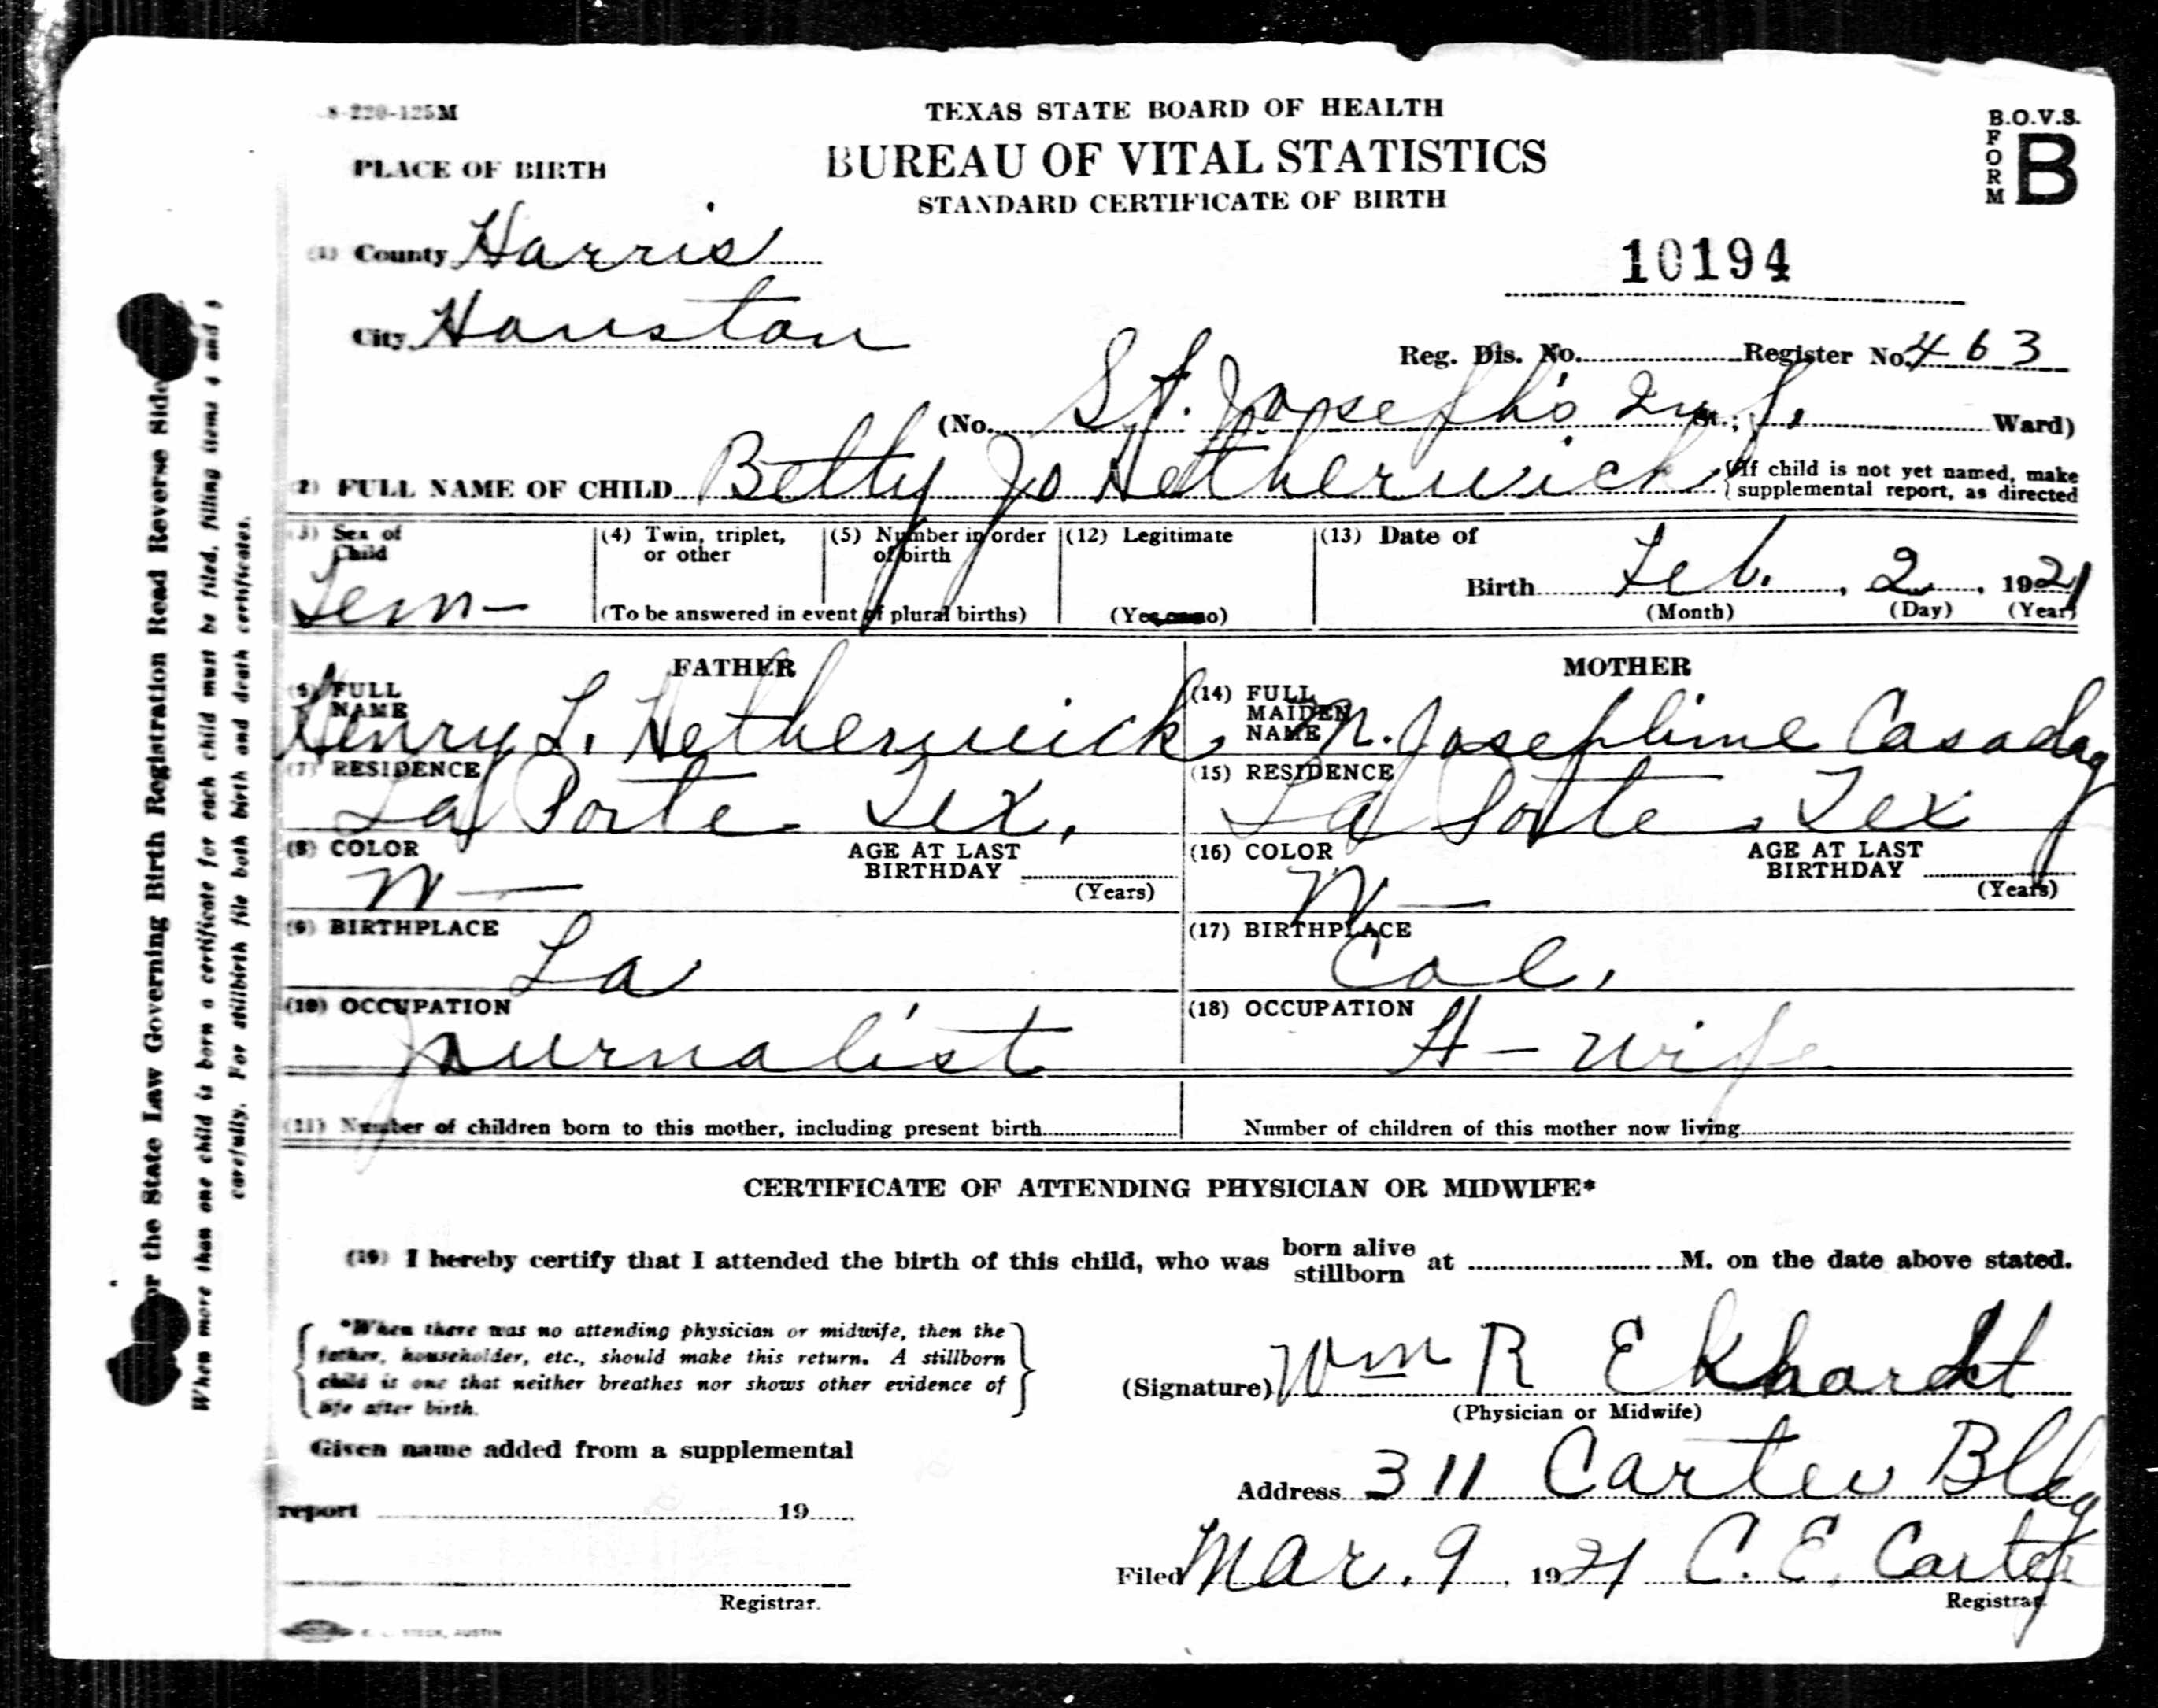 8-220-125M
TEXAS STATE BOARD OF HEALTH
BUREAU OF VITAL STATISTICS
STANDARD CERTIFICATE OF BIRTH
B.O.V.S.
FORM B
PLACE OF BIRTH
(1) County Harris
10194
City Houston
Reg. Dis. No. Register No. 463
(No. St. Joseph's Inf. St.; Ward)
(2) FULL NAME OF CHILD Betty Jo Hetherwick
(If child is not yet named, make
supplemental report, as directed
(3) Sex of Child Fem-
(4) Twin, triplet, or other
(5) Number in order of birth
(To be answered in event of plural births)
(12) Legitimate
(Yes or no)
(13) Date of
Birth Feb. , 2 , 1921
(Month) (Day) (Year)
FATHER
(6) FULL NAME Henry L. Hetherwick
(7) RESIDENCE
La Porte Tex.
(8) COLOR W—
AGE AT LAST BIRTHDAY (Years)
(9) BIRTHPLACE
La
(10) OCCUPATION
Journalist
MOTHER
(14) FULL MAIDEN NAME M. Josephine Casaday
(15) RESIDENCE
La Porte, Tex
(16) COLOR W—
AGE AT LAST BIRTHDAY (Years)
(17) BIRTHPLACE
Col.
(18) OCCUPATION
H-wife
(11) Number of children born to this mother, including present birth
Number of children of this mother now living
CERTIFICATE OF ATTENDING PHYSICIAN OR MIDWIFE*
(19) I hereby certify that I attended the birth of this child, who was born alive stillborn at M. on the date above stated.
*When there was no attending physician or midwife, then the
father, householder, etc., should make this return. A stillborn
child is one that neither breathes nor shows other evidence of
life after birth.
(Signature) Wm R Ekhardt
(Physician or Midwife)
Given name added from a supplemental
report 19
Registrar.
Address 311 Carter Bldg
Filed Mar. 9, 1921 C. E. Carter
Registrar
E. L. STECK, AUSTIN
For the State Law Governing Birth Registration Read Reverse Side
When more than one child is born a certificate for each child must be filed, filling items 4 and 5
carefully. For stillbirth file both birth and death certificates.